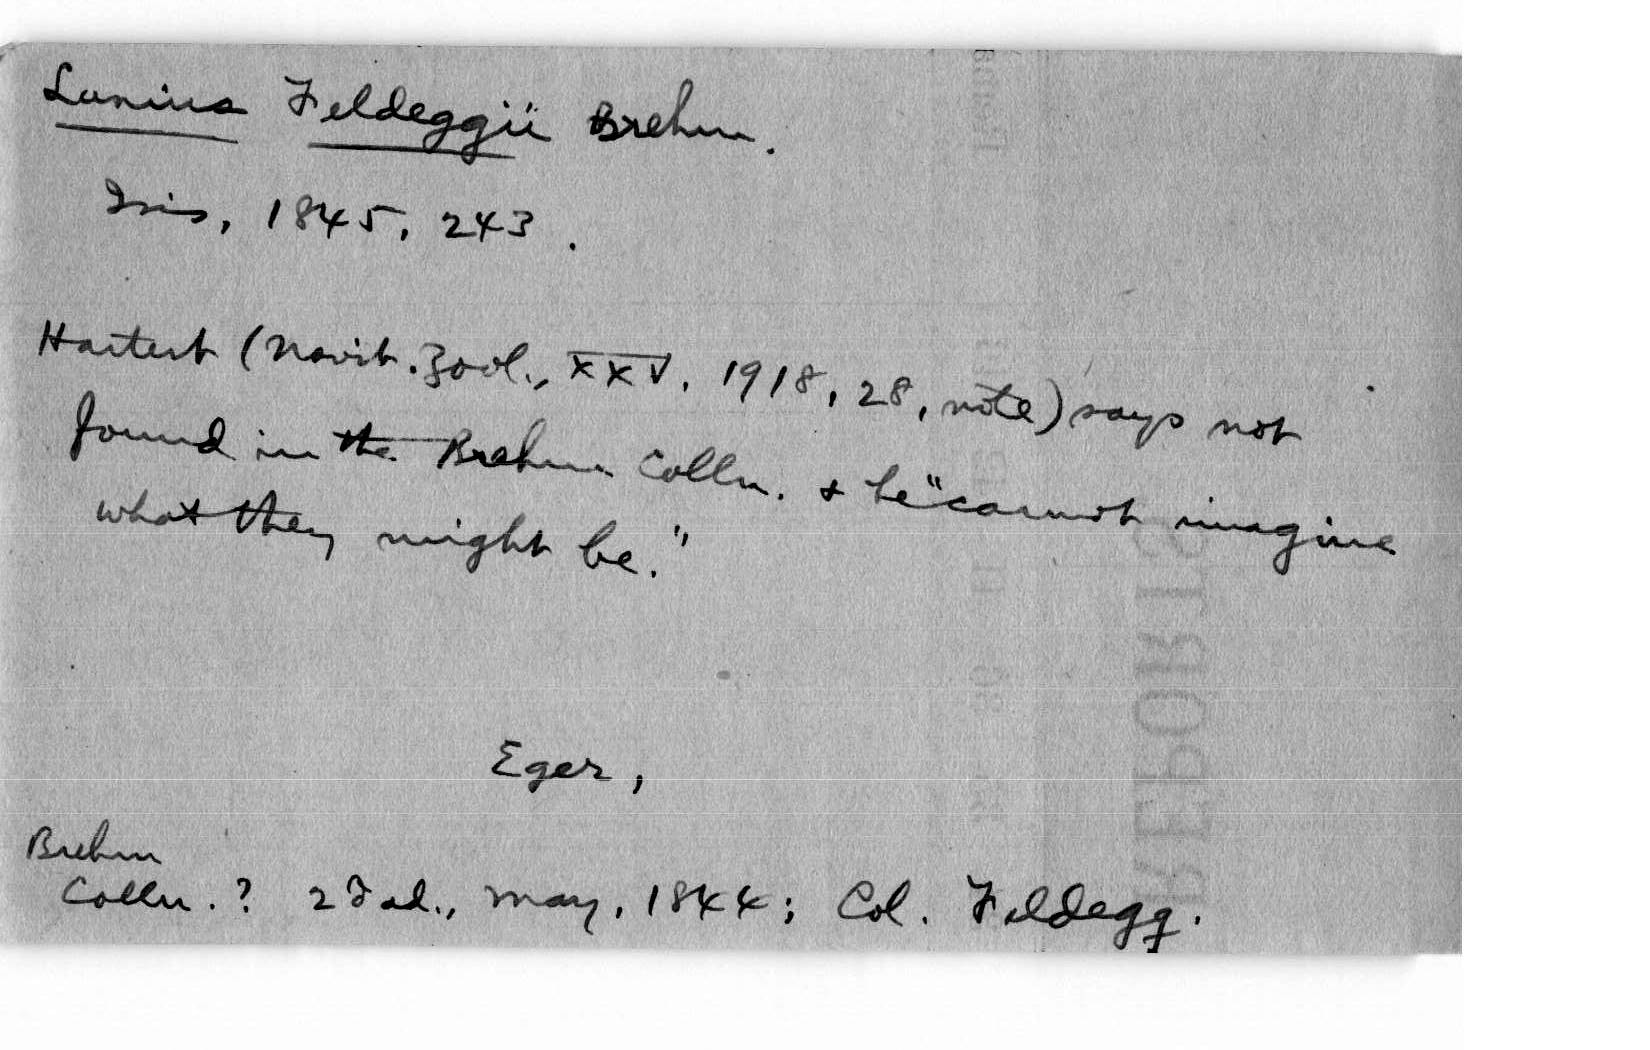 Lanius Feldeggii Brehm.
Isis, 1845, 243.
Hartert (Novit. Zool., XXV, 1918, 28, note) says not
found in the Brehm Colln. & he "cannot imagine
what they might be."
Eger,
Brehm
Colln. ? 2 ♂ ad., May, 1844; Col. Feldegg.
REPORTS